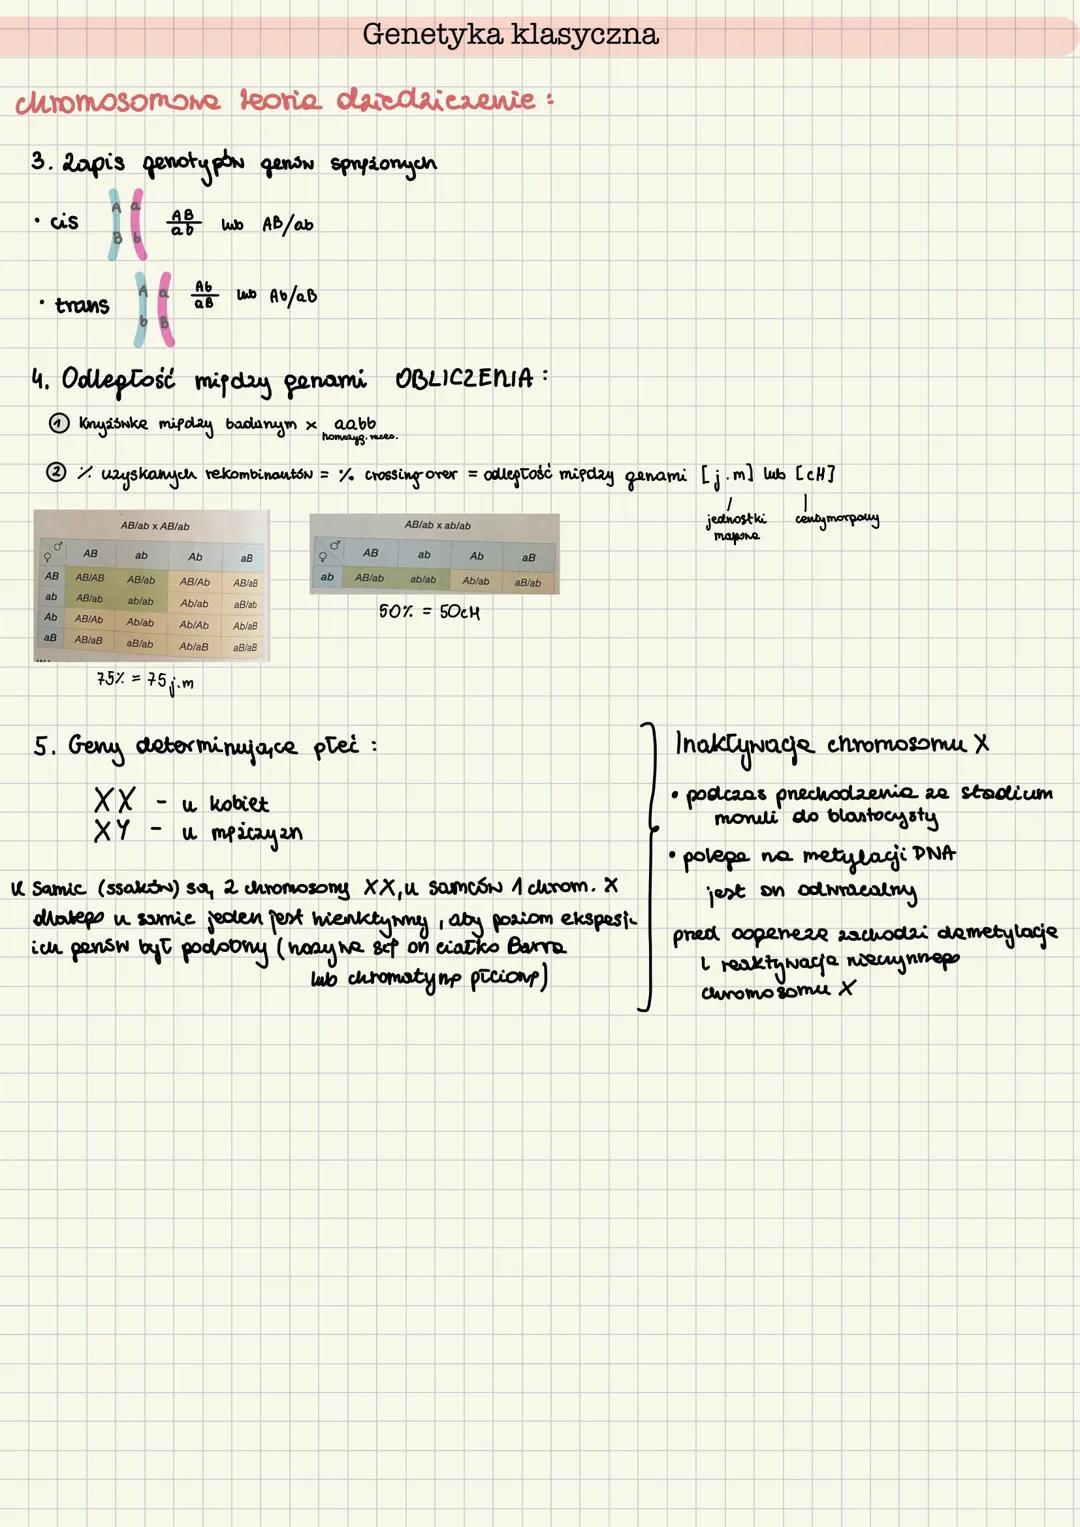 Genetyka klasyczna
chromosomowa teoria dziedziczenie :
3. Zapis genotypów genów sprzężonych
• cis A a B b AB/ab lub AB/ab
• trans A a b B Ab/aB lub Ab/aB
4. Odległość między genami OBLICZENIA :
1 Krzyżówka między badanym x aabb
homozyg. reces.
2 % uzyskanych rekombinantów = % crossing over = odległość między genami [j.m] lub [cM]
jednostki mapowe centymorgany
AB/ab x AB/ab
♀ ♂ AB ab Ab aB
AB AB/AB AB/ab AB/Ab AB/aB
ab AB/ab ab/ab Ab/ab aB/ab
Ab AB/Ab Ab/ab Ab/Ab Ab/aB
aB AB/aB aB/ab Ab/aB aB/aB
75% = 75 j.m
AB/ab x ab/ab
♀ ♂ AB ab Ab aB
ab AB/ab ab/ab Ab/ab aB/ab
50% = 50cM
5. Geny determinujące płeć :
XX - u kobiet
XY - u mężczyzn
U Samic (ssaków) są 2 chromosomy XX, u samców 1 chrom. X
dlatego u samic jeden jest nieaktywny, aby poziom ekspesji
ich genów był podobny (nazywa się on ciałko Barra
lub chromatyną płciową)
Inaktywacja chromosomu X
• podczas przechodzenia ze stadium
moruli do blastocysty
• polega na metylacji DNA
jest on odwracalny
przed oogenezę zachodzi demetylacja
i reaktywacja nieczynnego
chromosomu X